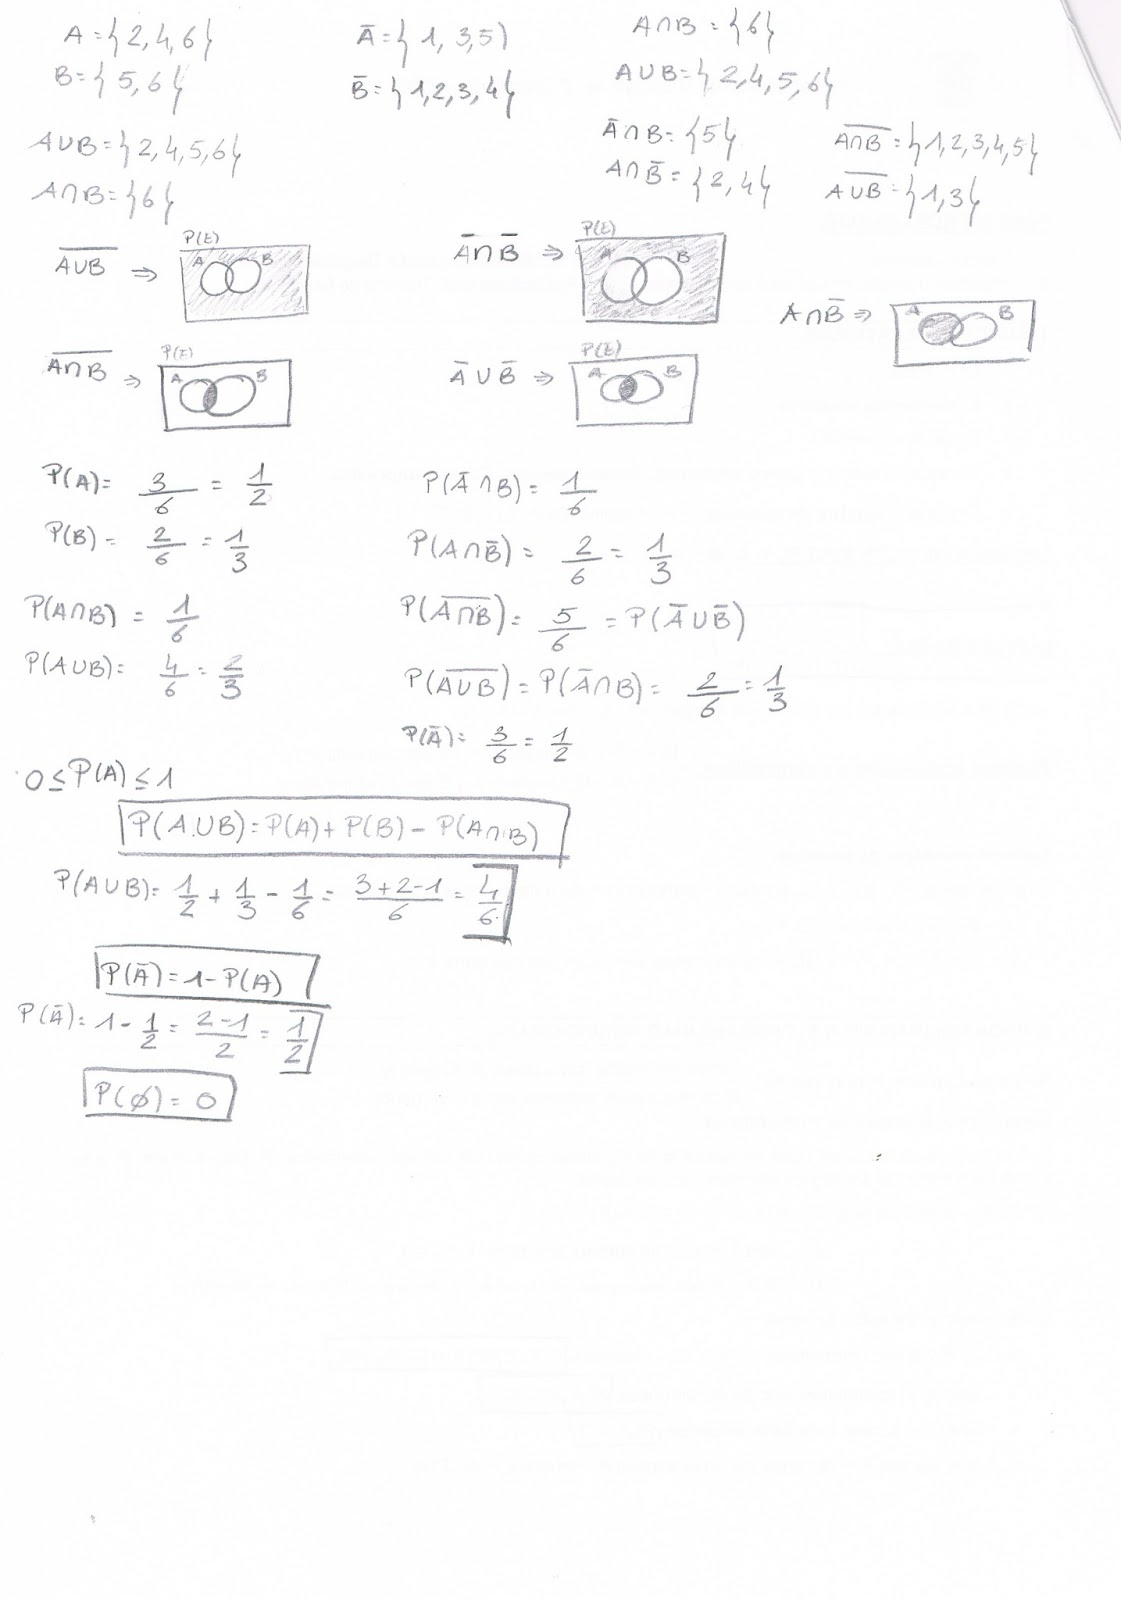 A = {2, 4, 6}
B = {5, 6}
A∪B = {2, 4, 5, 6}
A∩B = {6}
Ā = {1, 3, 5)
B̄ = {1, 2, 3, 4}
A∩B = {6}
A∪B = {2, 4, 5, 6}
Ā∩B = {5}
A∩B̄ = {2, 4}
A̅∩̅B̅ = {1, 2, 3, 4, 5}
A̅∪̅B̅ = {1, 3}
A̅∪̅B̅ ⇒ P(E) A B
Ā∩B̄ ⇒ P(E) A B
A∩B̄ ⇒ A B
A̅∩̅B̅ ⇒ P(E) A B
Ā∪B̄ ⇒ P(E) A B
P(A) = 3/6 = 1/2
P(B) = 2/6 = 1/3
P(A∩B) = 1/6
P(A∪B) = 4/6 = 2/3
P(Ā∩B) = 1/6
P(A∩B̄) = 2/6 = 1/3
P(A̅∩̅B̅) = 5/6 = P(Ā∪B̄)
P(A̅∪̅B̅) = P(Ā∩B) = 2/6 = 1/3
P(Ā) = 3/6 = 1/2
0 ≤ P(A) ≤ 1
P(A∪B) = P(A) + P(B) - P(A∩B)
P(A∪B) = 1/2 + 1/3 - 1/6 = 3+2-1/6 = 4/6
P(Ā) = 1 - P(A)
P(Ā) = 1 - 1/2 = 2-1/2 = 1/2
P(∅) = 0